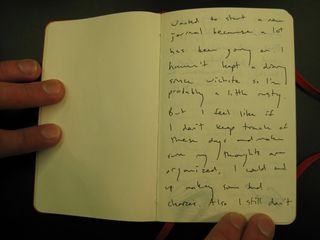 wanted to start a new
journal because a lot
has been going on. I
haven't kept a diary
since so I'm
probably a little rusty.
But I feel like if
I don't keep track of
these days and make
sure my thoughts are
organized, I could end
up making some bad
choices. Also I still don't